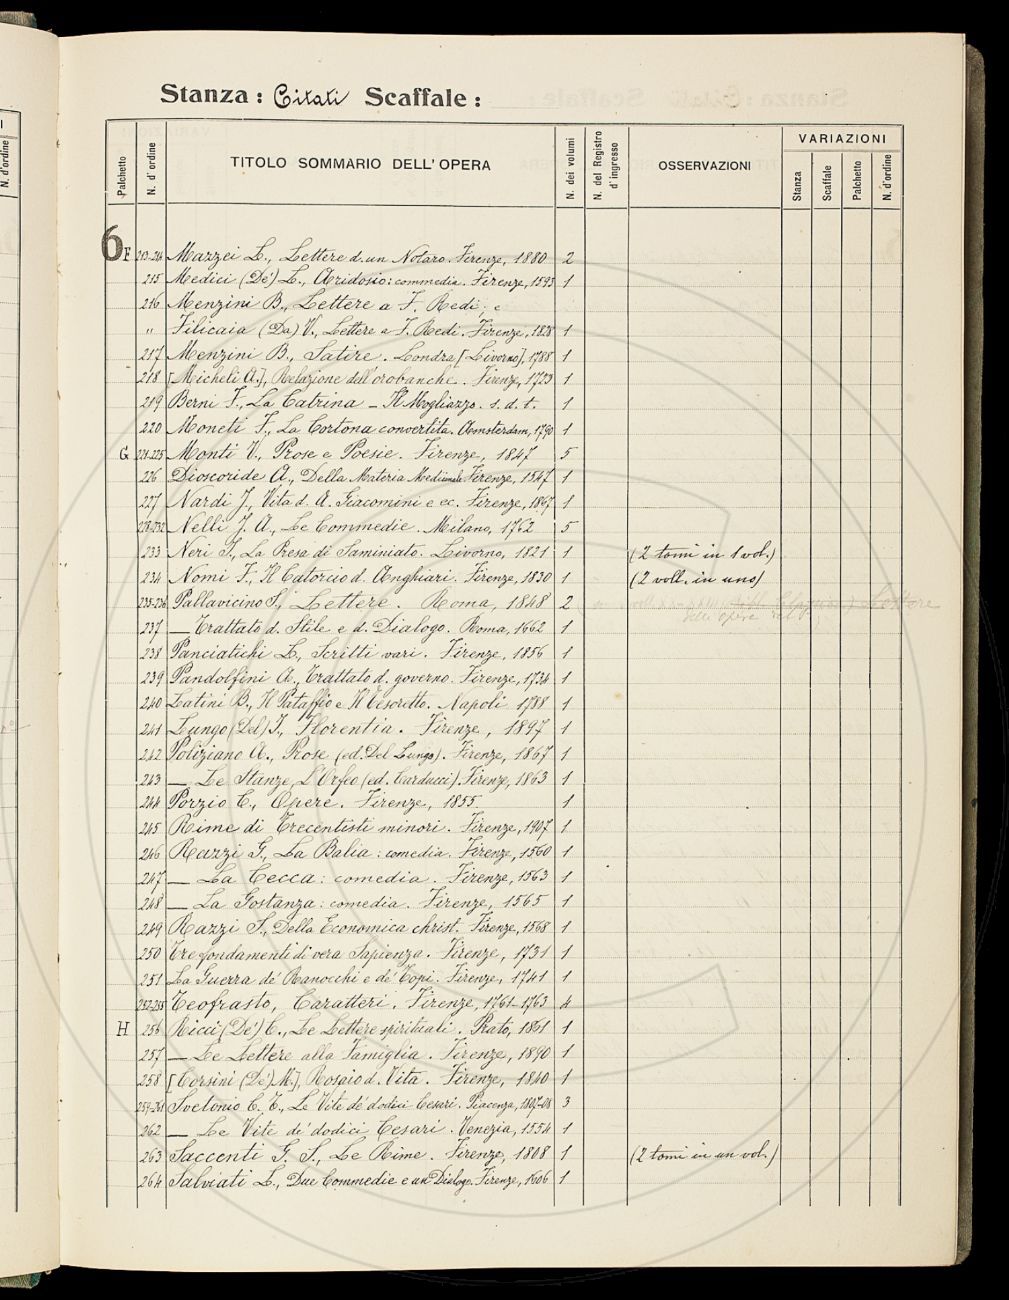 Stanza: Citati Scaffale:
Palchetto N. d'ordine TITOLO SOMMARIO DELL'OPERA N. dei volumi N. del Registro d'ingresso OSSERVAZIONI VARIAZIONI Stanza Scaffale Palchetto N. d'ordine
6 F 213-214 Mazzei L., Lettere d. un Notaro. Firenze, 1880 2
215 Medici (De') L., Aridosio: commedia. Firenze, 1593 1
216 Menzini B., Lettere a F. Redi; e
" Filicaia (Da) V., Lettere a F. Redi. Firenze, 1828 1
217 Menzini B., Satire. Londra [Livorno], 1788 1
218 [Micheli A.], Relazione dell'orobanche. Firenze, 1723 1
219 Berni F., La Catrina - Il Mogliazzo. s. d. t. 1
220 Moneti F., La Cortona convertita. Amsterdam, 1790 1
G 221-225 Monti V., Prose e Poesie. Firenze, 1847 5
226 Dioscoride A., Della Materia Medicinale. Firenze, 1547 1
227 Nardi J., Vita d. A. Giacomini e ec. Firenze, 1867 1
228-232 Nelli J. A., Le Commedie. Milano, 1762 5
233 Neri I., La Presa di Saminiato. Livorno, 1821 1 (2 tomi in 1 vol.)
234 Nomi F., Il Catorcio d. Anghiari. Firenze, 1830 1 (2 voll. in uno)
235-236 Pallavicino S., Lettere. Roma, 1848 2 Lettere
237 — Trattato d. Stile e d. Dialogo. Roma, 1662 1
238 Panciatichi L., Scritti vari. Firenze, 1856 1
239 Pandolfini A., Trattato d. governo. Firenze, 1734 1
240 Latini B., Il Pataffio e Il Tesoretto. Napoli 1788 1
241 Lungo (Del) I., Florentia. Firenze, 1897 1
242 Poliziano A., Prose (ed. Del Lungo). Firenze, 1867 1
243 — Le Stanze, L'Orfeo (ed. Carducci). Firenze, 1863 1
244 Porzio C., Opere. Firenze, 1855. 1
245 Rime di Trecentisti minori. Firenze, 1907 1
246 Razzi G., La Balia: comedia. Firenze, 1560 1
247 — La Cecca: comedia. Firenze, 1563 1
248 — La Gostanza: comedia. Firenze, 1565 1
249 Razzi S., Della Economica christ. Firenze, 1568 1
250 Tre fondamenti di vera Sapienza. Firenze, 1731 1
251 La Guerra de' Ranocchi e de' Topi. Firenze, 1741 1
252-255 Teofrasto, Caratteri. Firenze, 1761-1763 4
H 256 Ricci (De') C., Le Lettere spirituali. Prato, 1861 1
257 — Le Lettere alla Famiglia. Firenze, 1890 1
258 [Corsini (De') M.], Rosaio d. Vita. Firenze, 1840 1
259-261 Svetonio C. T., Le Vite de' dodici Cesari. Piacenza, 1807-08 3
262 — Le Vite de' dodici Cesari. Venezia, 1554 1
263 Saccenti G. S., Le Rime. Firenze, 1808 1 (2 tomi in un vol.)
264 Salviati L., Due Commedie e un Dialogo. Firenze, 1606 1